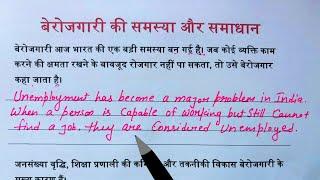 बेरोजगारी की समस्या और समाधान
बेरोजगारी आज भारत की एक बड़ी समस्या बन गई है। जब कोई व्यक्ति काम
करने की क्षमता रखने के बावजूद रोजगार नहीं पा सकता, तो उसे बेरोजगार
कहा जाता है।
Unemployment has become a major problem in India.
When a person is Capable of working but Still Cannot
find a job. they are Considered Unemployed.
जनसंख्या वृद्धि, शिक्षा प्रणाली की और तकनीकी विकास बेरोजगारी के
मुख्य कारण हैं।